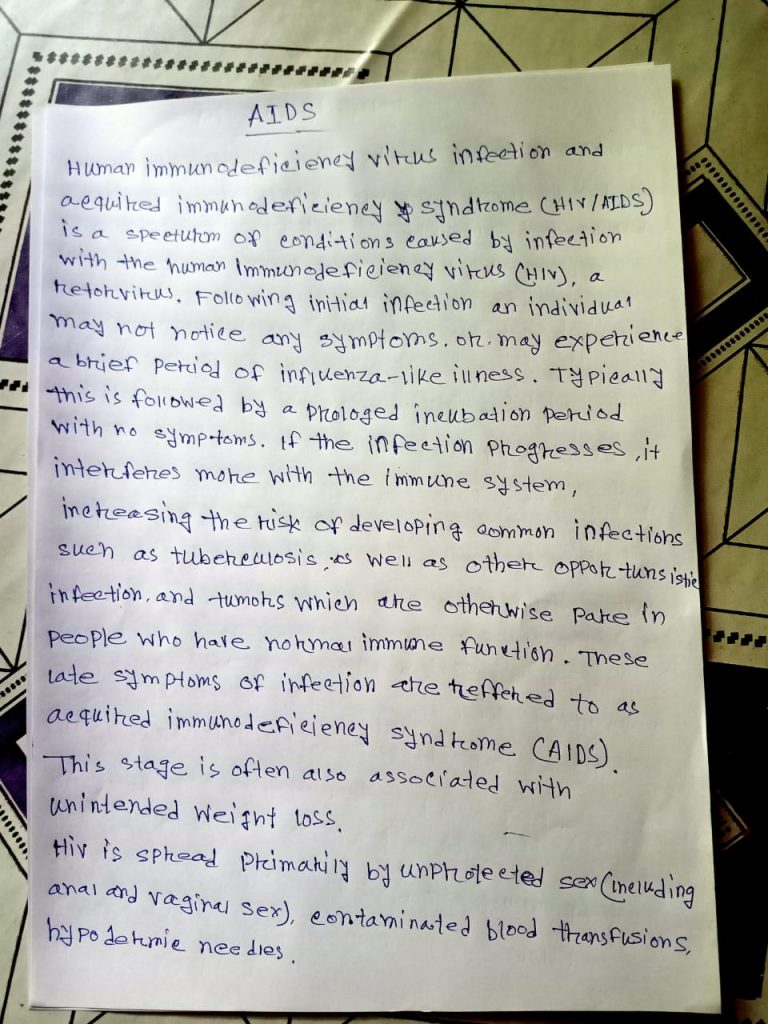 AIDS
Human immunodeficiency virus infection and
acquired immunodeficiency syndrome (HIV/AIDS)
is a specturm of conditions caused by infection
with the human Immunodeficiency virus (HIV), a
retorvirus. Following initial infection an individual
may not notice any symptoms. or. may experience
a brief period of influenza-like illness. Typically
this is followed by a prologed incubation period
with no symptoms. If the infection progresses, it
interferes more with the immune system,
increasing the risk of developing common infections
such as tuberculosis, as well as other opportunsistic
infection, and tumors which are otherwise rare in
people who have normal immune function. These
late symptoms of infection are reffered to as
acquired immunodeficiency syndrome (AIDS).
This stage is often also associated with
unintended weight loss.
HIV is spread primarily by unprotected sex (including
anal and vaginal sex), contaminated blood transfusions,
hypodermic needles.